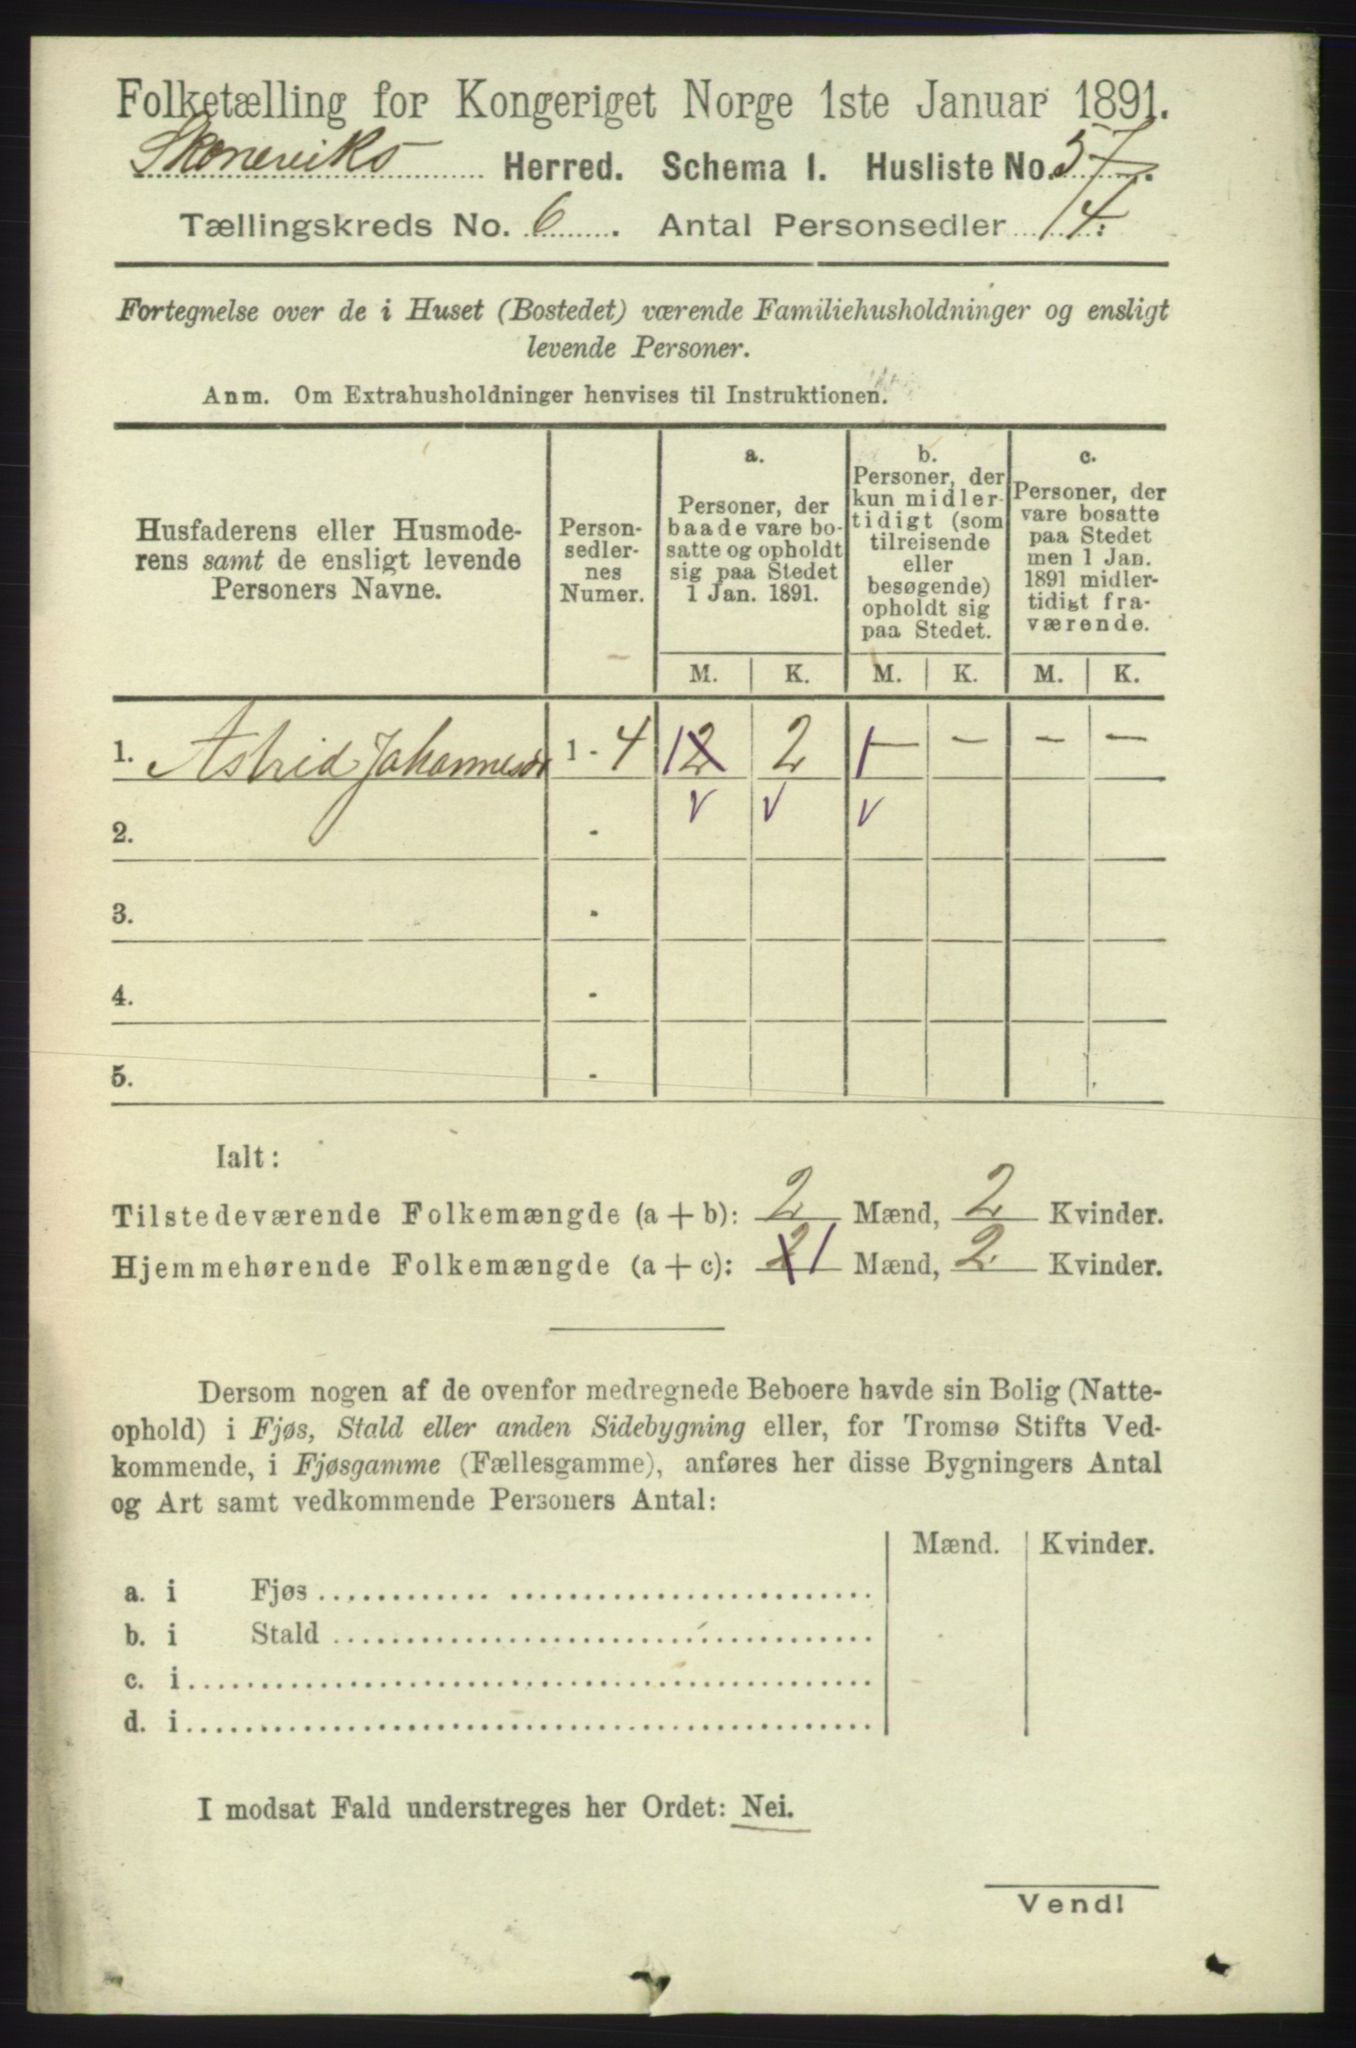 Folketælling for Kongeriget Norge 1ste Januar 1891.
Skoneviks Herred. Schema I. Husliste No. 57.
Tællingskreds No. 6. Antal Personsedler 4.
Fortegnelse over de i Huset (Bostedet) værende Familiehusholdninger og ensligt
levende Personer.
Anm. Om Extrahusholdninger henvises til Instruktionen.
Husfaderens eller Husmode-
rens samt de ensligt levende
Personers Navne.
Person-
sedler-
nes
Numer.
a.
Personer, der
baade vare bo-
satte og opholdt
sig paa Stedet
1 Jan. 1891.
b.
Personer, der
kun midler-
tidigt (som
tilreisende
eller
besøgende)
opholdt sig
paa Stedet.
c.
Personer, der
vare bosatte
paa Stedet
men 1 Jan.
1891 midler-
tidigt fra-
værende.
M. K. M. K. M. K.
1. Astrid Johannesdr 1 - 4 1 2 2 1 - - - -
2. - v v v
3. -
4. -
5. -
Ialt:
Tilstedeværende Folkemængde (a + b): 2 Mænd, 2 Kvinder.
Hjemmehørende Folkemængde (a + c): 2 1 Mænd, 2 Kvinder.
Dersom nogen af de ovenfor medregnede Beboere havde sin Bolig (Natte-
ophold) i Fjøs, Stald eller anden Sidebygning eller, for Tromsø Stifts Ved-
kommende, i Fjøsgamme (Fællesgamme), anføres her disse Bygningers Antal
og Art samt vedkommende Personers Antal:
Mænd. Kvinder.
a. i Fjøs
b. i Stald
c. i
d. i
I modsat Fald understreges her Ordet: Nei.
Vend!